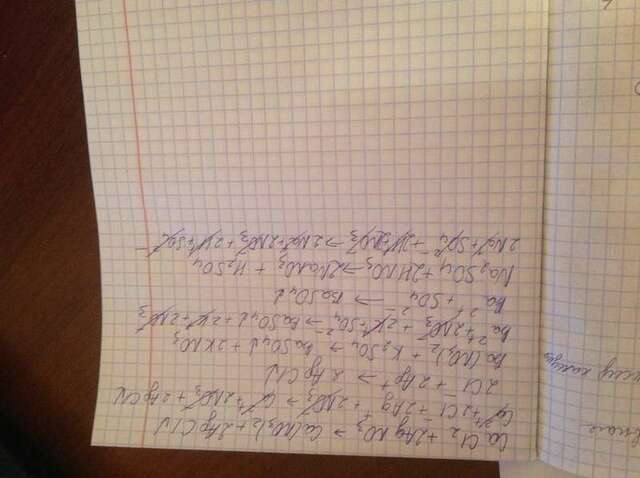 CaCl2 + 2AgNO3 → Ca(NO3)2 + 2AgCl↓
Ca2+ + 2Cl- + 2Ag+ + 2NO3- → Ca2+ + 2NO3- + 2AgCl↓
2Cl- + 2Ag+ → 2AgCl↓
Ba(NO3)2 + K2SO4 → BaSO4↓ + 2KNO3
Ba2+ + 2NO3- + 2K+ + SO4 2- → BaSO4↓ + 2K+ + 2NO3-
Ba2+ + SO4 2- → BaSO4↓
Na2SO4 + 2HNO3 → 2NaNO3 + H2SO4
2Na+ + SO4 2- + 2H+ + 2NO3- → 2Na+ + 2NO3- + 2H+ + SO4 2-